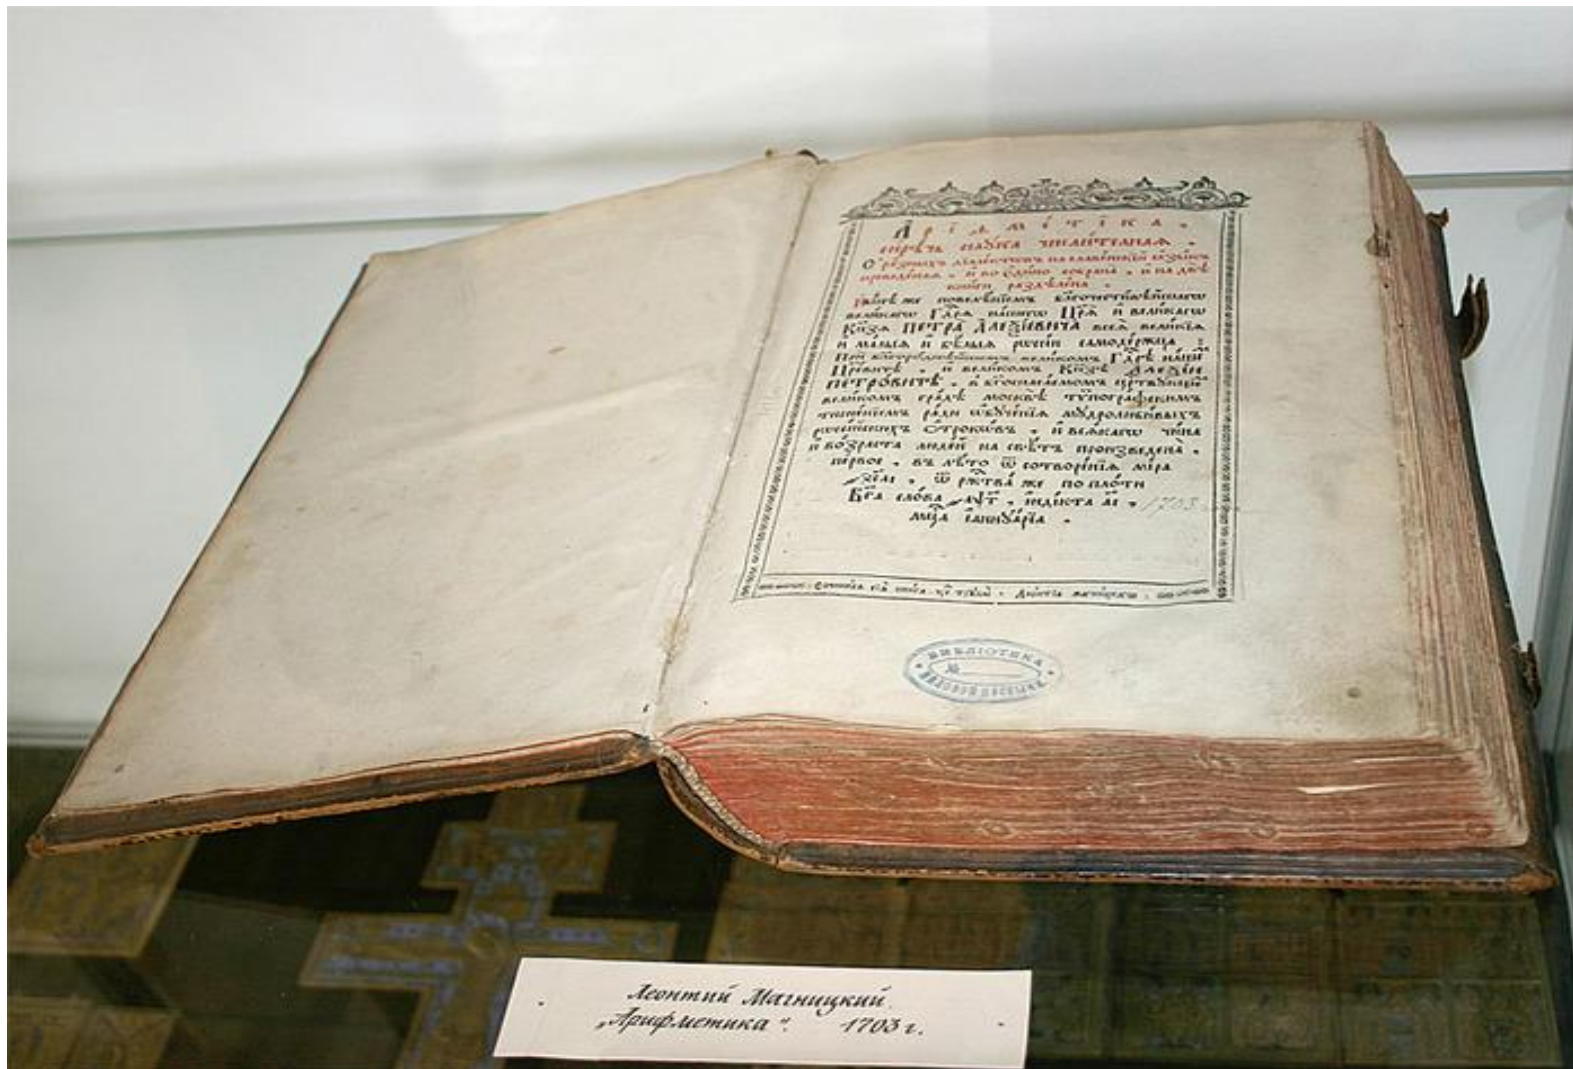 А҆рїѳмétїка,
сирѣчь наука числителная.
С̾ разныхъ дїалектовъ на славенскїй ѧзыкъ
преведеная, и во едино собрана, и на двѣ
книги раздѣлена.
Нынѣ же повелѣнїемъ благочестивѣйшагѡ
великагѡ Гдⷭ҇рѧ нашегѡ Цр҃ѧ и великагѡ
Кн҃зѧ ПЕТРА Алеѯїевича всеѧ великїѧ
и малыѧ и бѣлыѧ рѡссїи самодержца:
При великомъ Гдⷭ҇рѣ нашемъ
и великомъ Кн҃зѣ Алеѯїи
Петровичѣ, в цр҃ствующемъ
великомъ градѣ москвѣ тѷпографскимъ
тисненїемъ ради ѡбученїѧ мудролюбивыхъ
рѡссїйскихъ ѻтрокѡвъ, и всѧкагѡ чина
и возраста людей на свѣтъ произведена,
первое, въ лѣто ѿ сотворенїѧ мїра
҂зсаі, ѿ рж҃тва же по плоти
Бг҃а слова ҂аѱг, индїкта аі, 1703
мцⷭ҇а іаннуарїа.
Сочинисѧ сїѧ книга чрез труды Леонтїа магницкагѡ
БИБЛІОТЕКА
№
Леонтий Магницкий
„Арифметика“. 1703 г.